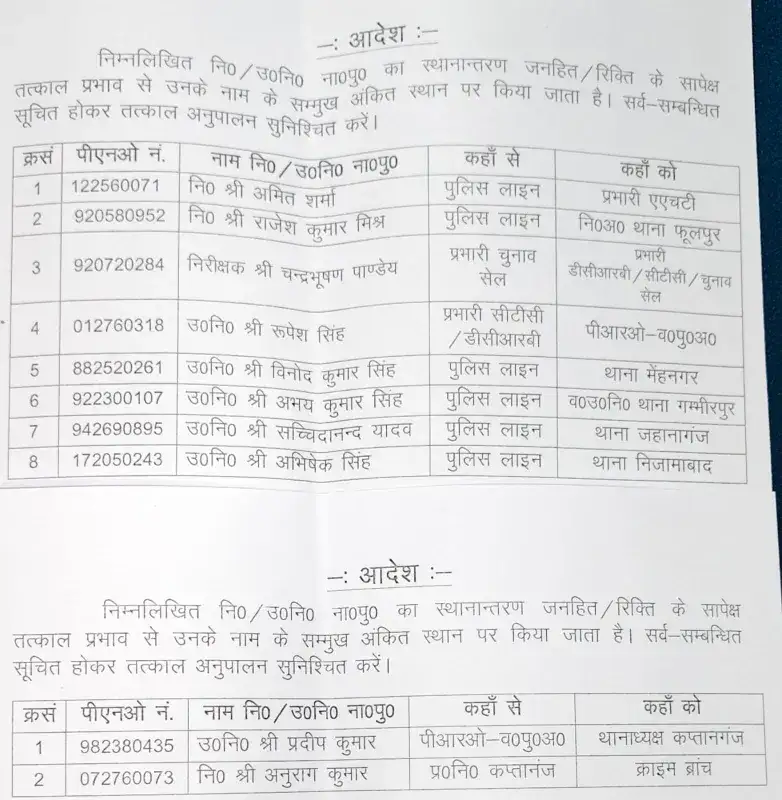 -: आदेश :-
निम्नलिखित नि0/उ0नि0 ना0पु0 का स्थानान्तरण जनहित/रिक्ति के सापेक्ष
तत्काल प्रभाव से उनके नाम के सम्मुख अंकित स्थान पर किया जाता है। सर्व-सम्बन्धित
सूचित होकर तत्काल अनुपालन सुनिश्चित करें।
क्रसं पीएनओ नं. नाम नि0/उ0नि0 ना0पु0 कहाँ से कहाँ को
1 122560071 नि0 श्री अमित शर्मा पुलिस लाइन प्रभारी एएचटी
2 920580952 नि0 श्री राजेश कुमार मिश्र पुलिस लाइन नि0अ0 थाना फूलपुर
3 920720284 निरीक्षक श्री चन्द्रभूषण पाण्डेय प्रभारी चुनाव
सेल प्रभारी
डीसीआरबी/सीटीसी/चुनाव
सेल
4 012760318 उ0नि0 श्री रूपेश सिंह प्रभारी सीटीसी
/डीसीआरबी पीआरओ-व0पु0अ0
5 882520261 उ0नि0 श्री विनोद कुमार सिंह पुलिस लाइन थाना मेंहनगर
6 922300107 उ0नि0 श्री अभय कुमार सिंह पुलिस लाइन व0उ0नि0 थाना गम्भीरपुर
7 942690895 उ0नि0 श्री सच्चिदानन्द यादव पुलिस लाइन थाना जहानागंज
8 172050243 उ0नि0 श्री अभिषेक सिंह पुलिस लाइन थाना निजामाबाद
-: आदेश :-
निम्नलिखित नि0/उ0नि0 ना0पु0 का स्थानान्तरण जनहित/रिक्ति के सापेक्ष
तत्काल प्रभाव से उनके नाम के सम्मुख अंकित स्थान पर किया जाता है। सर्व-सम्बन्धित
सूचित होकर तत्काल अनुपालन सुनिश्चित करें।
क्रसं पीएनओ नं. नाम नि0/उ0नि0 ना0पु0 कहाँ से कहाँ को
1 982380435 उ0नि0 श्री प्रदीप कुमार पीआरओ-व0पु0अ0 थानाध्यक्ष कप्तानगंज
2 072760073 नि0 श्री अनुराग कुमार प्र0नि0 कप्तानंज क्राइम ब्रांच